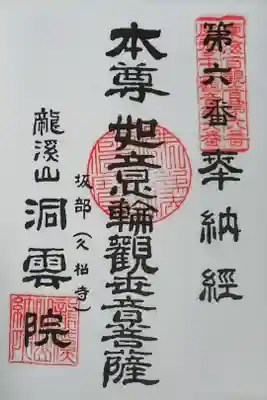 第六番 奉納経
本尊 如意輪觀世音菩薩
坂部(久松寺)
龍溪山 洞雲院